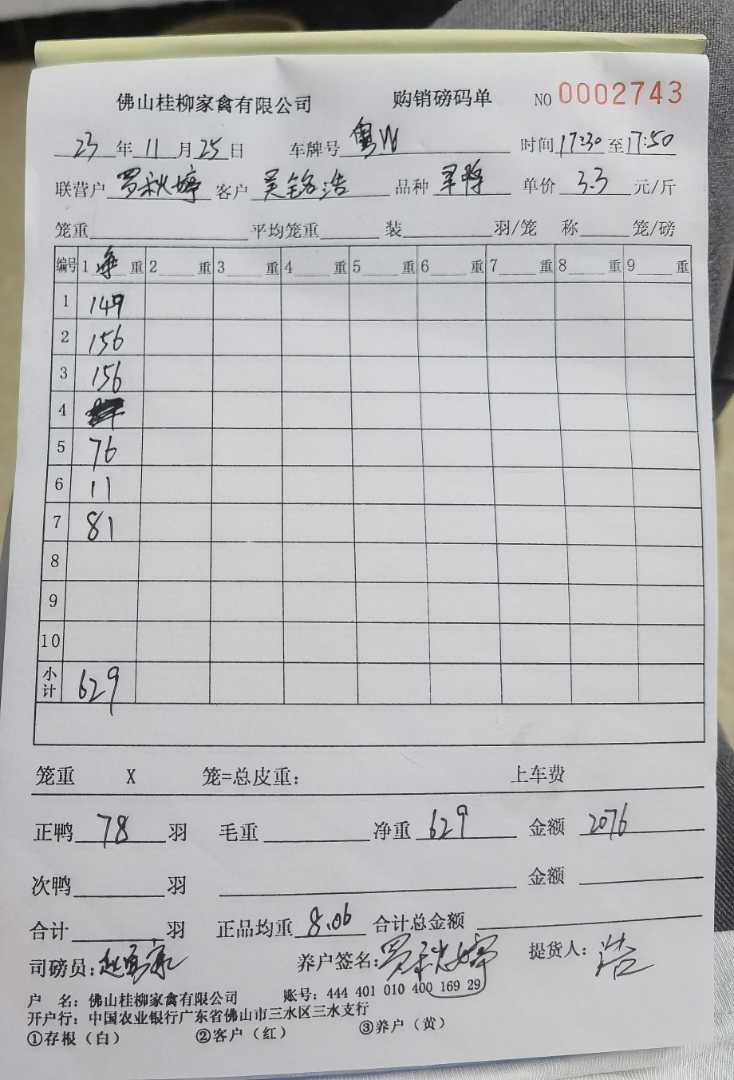 佛山桂柳家禽有限公司 购销磅码单 NO 0002743
23年11月25日 车牌号 粤W 时间17:30至17:50
联营户 罗秋婷 客户 吴铭浩 品种 单价 3.3 元/斤
笼重 平均笼重 装 羽/笼 称 笼/磅
编号 1 净 重 2 重 3 重 4 重 5 重 6 重 7 重 8 重 9 重
1 149
2 156
3 156
4
5 76
6 11
7 81
8
9
10
小计 629
笼重 X 笼=总皮重: 上车费
正鸭 78 羽 毛重 净重 629 金额 2076
次鸭 羽 金额
合计 羽 正品均重 8.06 合计总金额
司磅员: 养户签名:罗秋婷 提货人: 浩
户 名: 佛山桂柳家禽有限公司 账号: 444 401 010 400 169 29
开户行: 中国农业银行广东省佛山市三水区三水支行
①存根(白) ②客户(红) ③养户(黄)